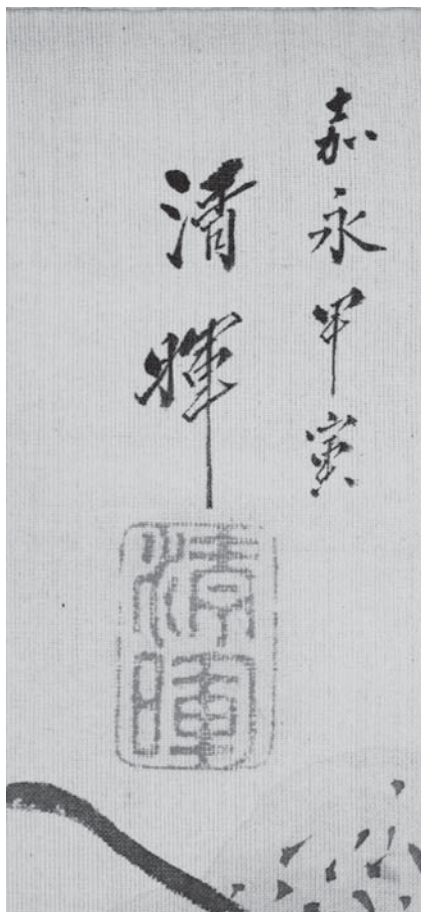 嘉永甲寅
清暉
清暉